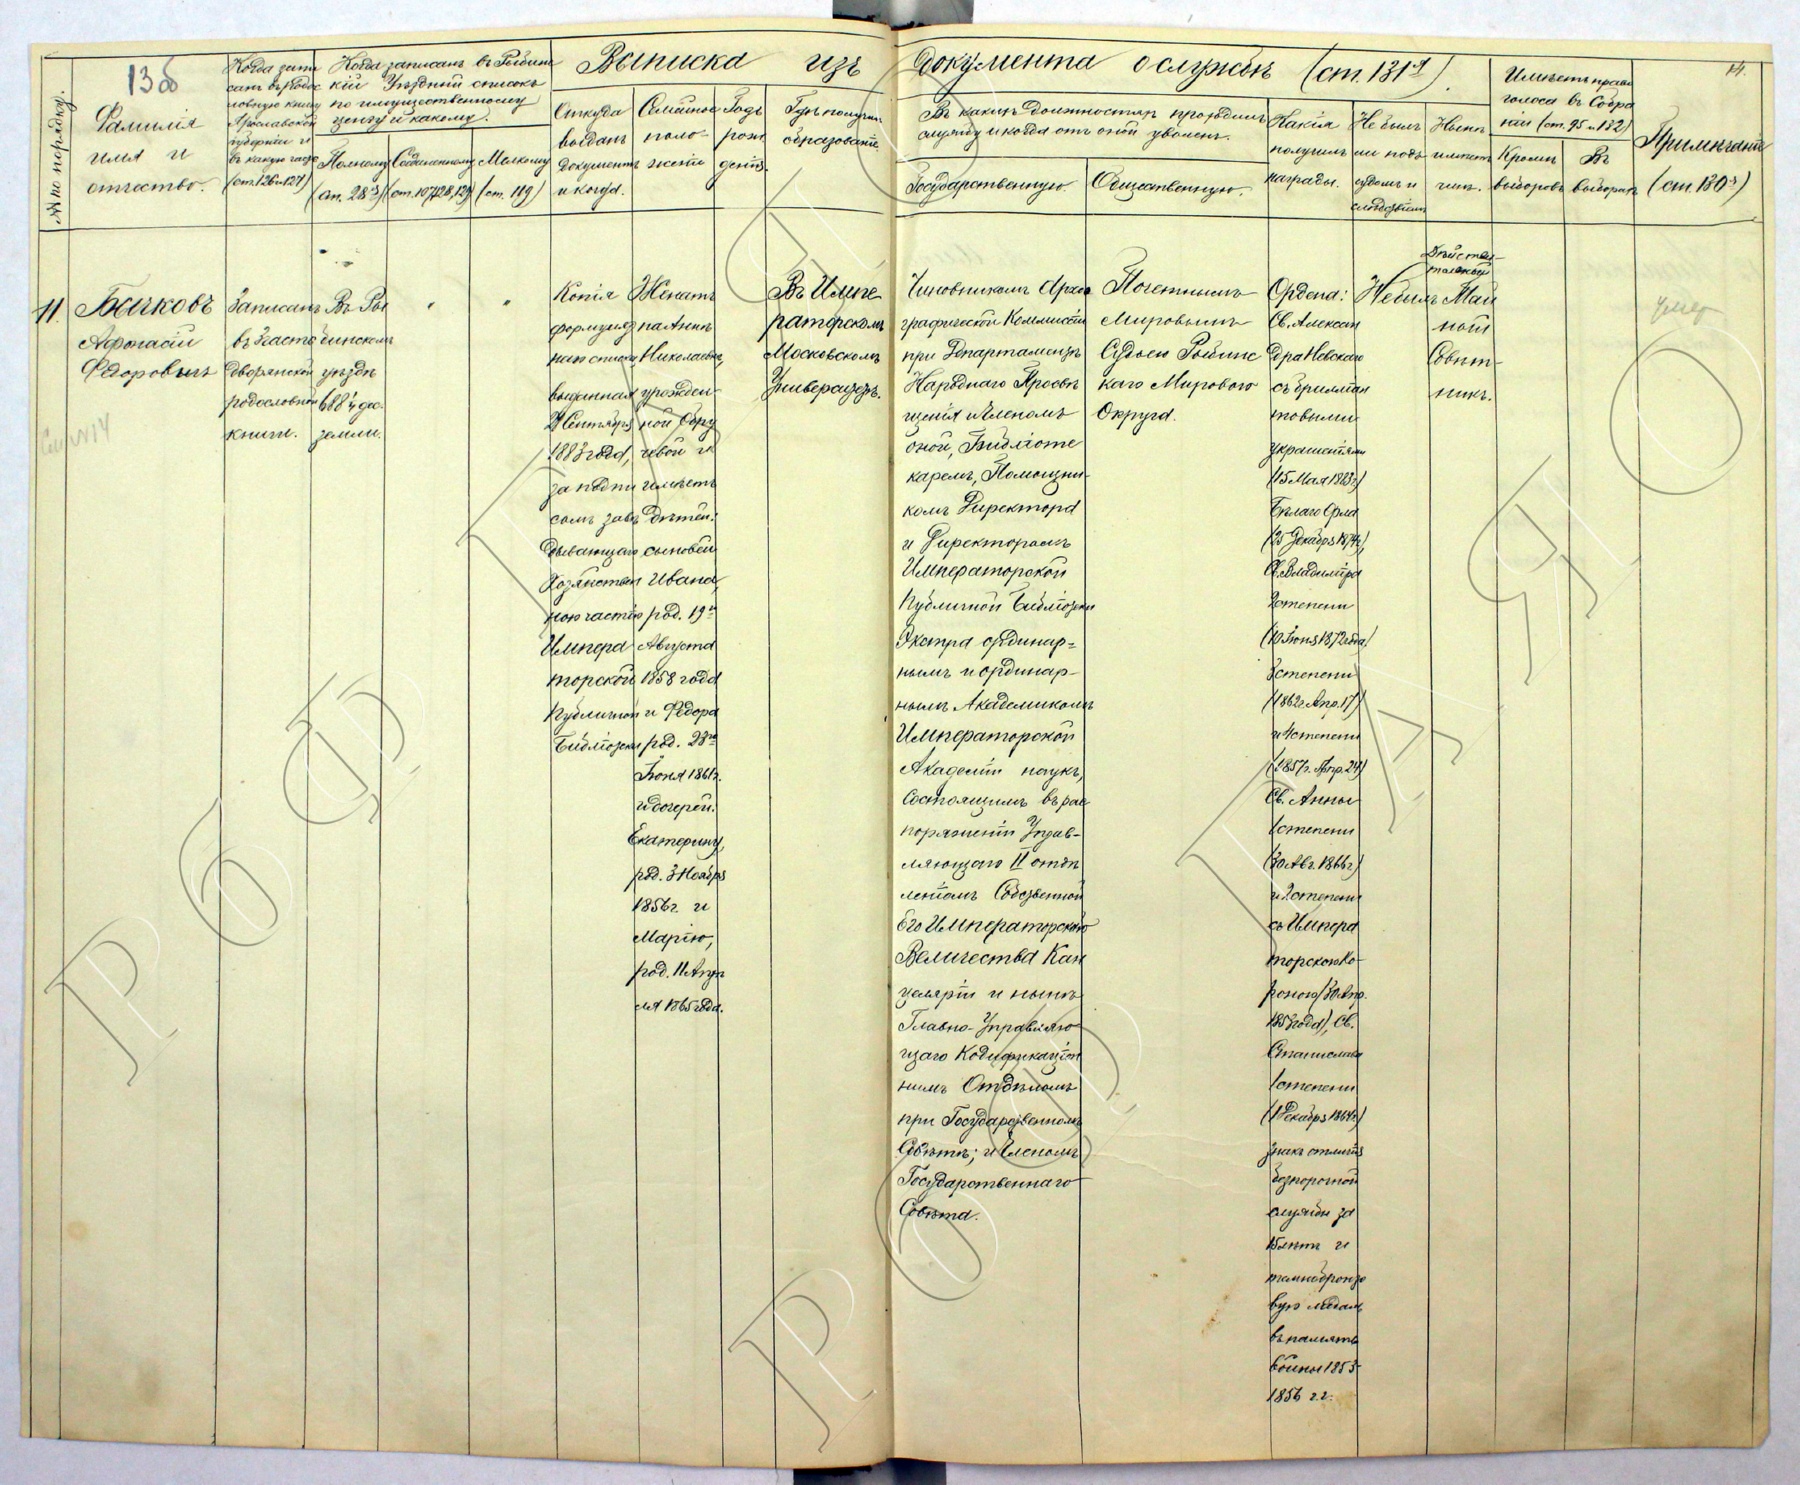 13об
14.
№ по порядку.
Фамилія
имя и
отчество.
Когда запи
санъ въ Родос
ловную книгу
Ярославской
губерніи и
въ какую часть
(ст. 126 и 127)
Когда записанъ въ Рыбинс
кій Уѣздный списокъ
по имущественному
цензу и какому.
Полному
(ст. 28
Соединенному
Мелкому
(ст. 119)
Выписка изъ документа о службѣ (ст. 131
Откуда
выданъ
документъ
и когда.
Семейное
поло-
женіе
Годъ
рож
денія.
Гдѣ получилъ
образованіе
Въ какихъ должностяхъ проходилъ
службу и когда отъ оной уволенъ.
Государственную.
Общественную.
Какія
получилъ
награды.
Не былъ
ли подъ
судомъ и
слѣдствіемъ
Нынѣ
имѣетъ
чинъ.
Имѣетъ право
голоса въ Собра
ніи (ст. 95 и 132)
Кромѣ
выборовъ
Въ
выборахъ
Примѣчаніе
(ст. 130
11.
Бычковъ
Афонасій
Федоровичъ
№ 14
Записанъ
въ 3 часть
дворянской
родословной
книги.
Въ Ры
бинскомъ
уѣздѣ
688 1/4 дес.
земли.
Копія
формуляр
наго списка,
выданная
Сентября
1883 года,
за подпи
сомъ завѣ
дывающаго
Хозяйствен
ною частію
Импера
торской
Публичной
Библіотеки
Женатъ
на Аннѣ
Николаевнѣ,
урожден-
ной Обру
чевой и
имѣетъ
дѣтей:
сыновей
Ивана,
род. 19го
Августа
1858 года
и Федора
род. 23го
Іюня 1861 г.
и дочерей:
Екатерину,
род. 3 Ноября
1856 г. и
Марію,
род. 11 Апрѣ
ля 1865 года.
Въ Импе
раторскомъ
Московскомъ
Университетѣ.
Чиновникомъ Архео
графической Коммисіи
при Департаментѣ
Народнаго Просвѣ
щенія и Членомъ
оной, Библіоте
каремъ, Помощни-
комъ Директора
и Директоромъ
Императорской
Публичной Библіотеки
Экстра ординар-
нымъ и ординар-
нымъ Академикомъ
Императорской
Академіи наукъ,
Состоящимъ въ рас
поряженіи Управ-
ляющаго II отдѣ
леніемъ Собственной
Его Императорскаго
Величества Кан
целяріи и нынѣ
Главно-Управляю
щаго Кодификаціон
нымъ Отдѣломъ
при Государственномъ
Совѣтѣ; и Членомъ
Государственнаго
Совѣта.
Почетнымъ
Мировымъ
Судьею Рыбинс
каго Мироваго
Округа.
Ордена:
Св. Алексан
дра Невскаго
съ брилліан
товыми
украшеніями
(15 Мая 1883 г.)
Бѣлаго Орла
(25 Декабря 1874 г.),
Св. Владиміра
2 степени
(10 Іюня 1872 года)
3 степени
(1862 г. Апр. 17)
и 4 степени
(1857 г. Апр. 24)
Св. Анны
1 степени
(30 Авг. 1866 г.)
и 2 степени
съ Импера
торскою Ко-
роною (30 Апр.
1853 года), Св.
Станислава
1 степени
(1 Декабря 1864 г.)
знакъ отличія
безпорочной
службы за
15 лѣтъ и
темнобронзо
вую медаль
въ память
войны 1853-
1856 г.г.
Не былъ
Дѣйстви-
тельный
Тай
ной
Совѣт-
никъ.
умер
РбФ ГАЯО
РбФ ГАЯО